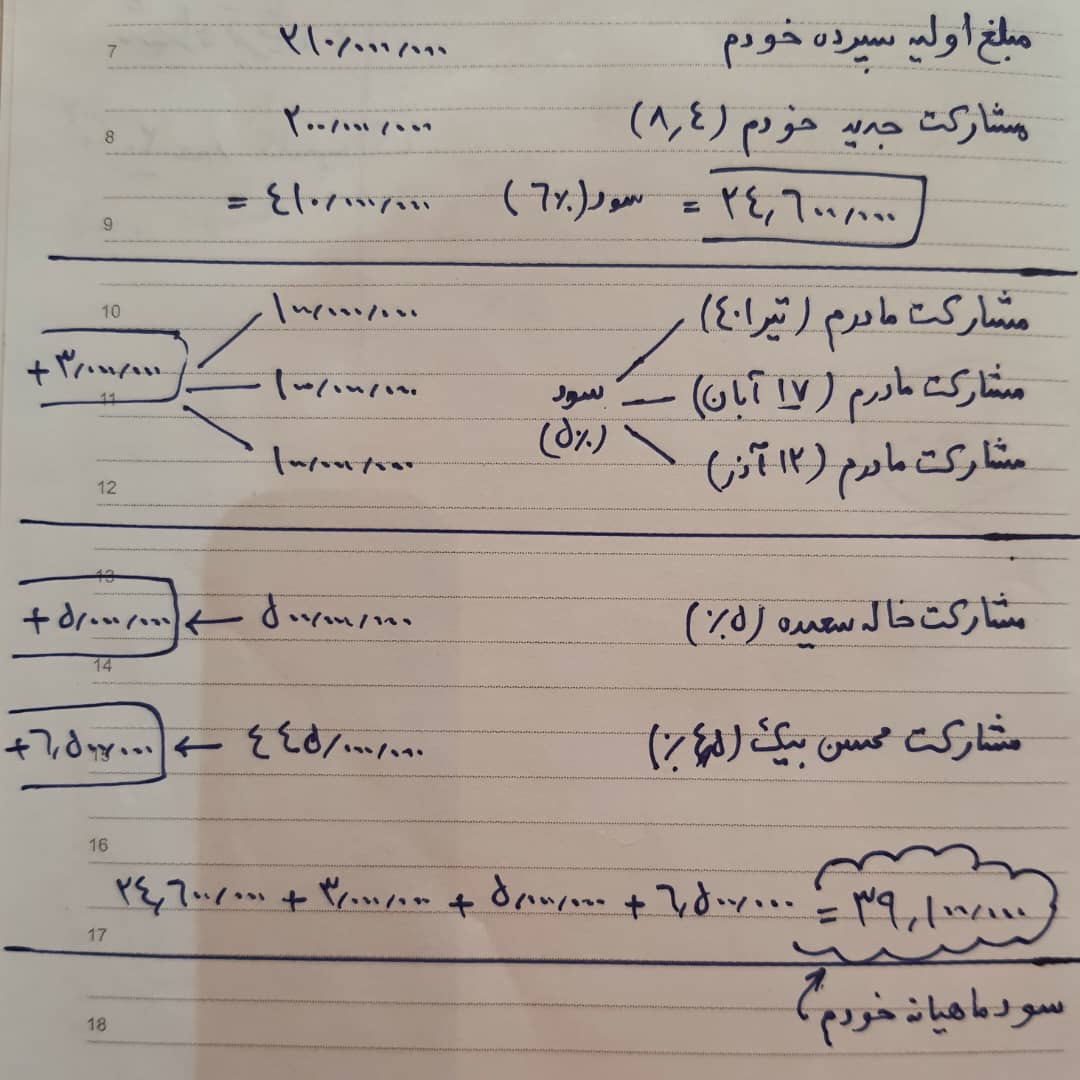 7 مبلغ اولیه سپرده خودم ۲۱۰/۰۰۰/۰۰۰
8 مشارکت جدید خودم (۸,٤) ۲۰۰/۰۰۰/۰۰۰
9 = ٤۱۰/۰۰۰/۰۰۰ سود (٪٦) = ۲٤,٦۰۰/۰۰۰
10 مشارکت مادرم (تیر ٤۰۱) ۱۰۰/۰۰۰/۰۰۰
مشارکت مادرم (۱۷ آبان) سود ۱۰۰/۰۰۰/۰۰۰ + ۳/۰۰۰/۰۰۰
11 (٪۵)
مشارکت مادرم (۱۲ آذر) ۱۰۰/۰۰۰/۰۰۰
12
13 مشارکت خاله سعیده (٪۵) ۵۰۰/۰۰۰/۰۰۰ ← + ۵/۰۰۰/۰۰۰
14
مشارکت محسن بیگ ٤٤۵/۰۰۰/۰۰۰ ← + ٦,۵۰۰/۰۰۰
15
16
۲٤,٦۰۰/۰۰۰ + ۳/۰۰۰/۰۰۰ + ۵/۰۰۰/۰۰۰ + ٦,۵۰۰/۰۰۰ = ۳۹,۱۰۰/۰۰۰
17
سود ماهیانه خودم
18